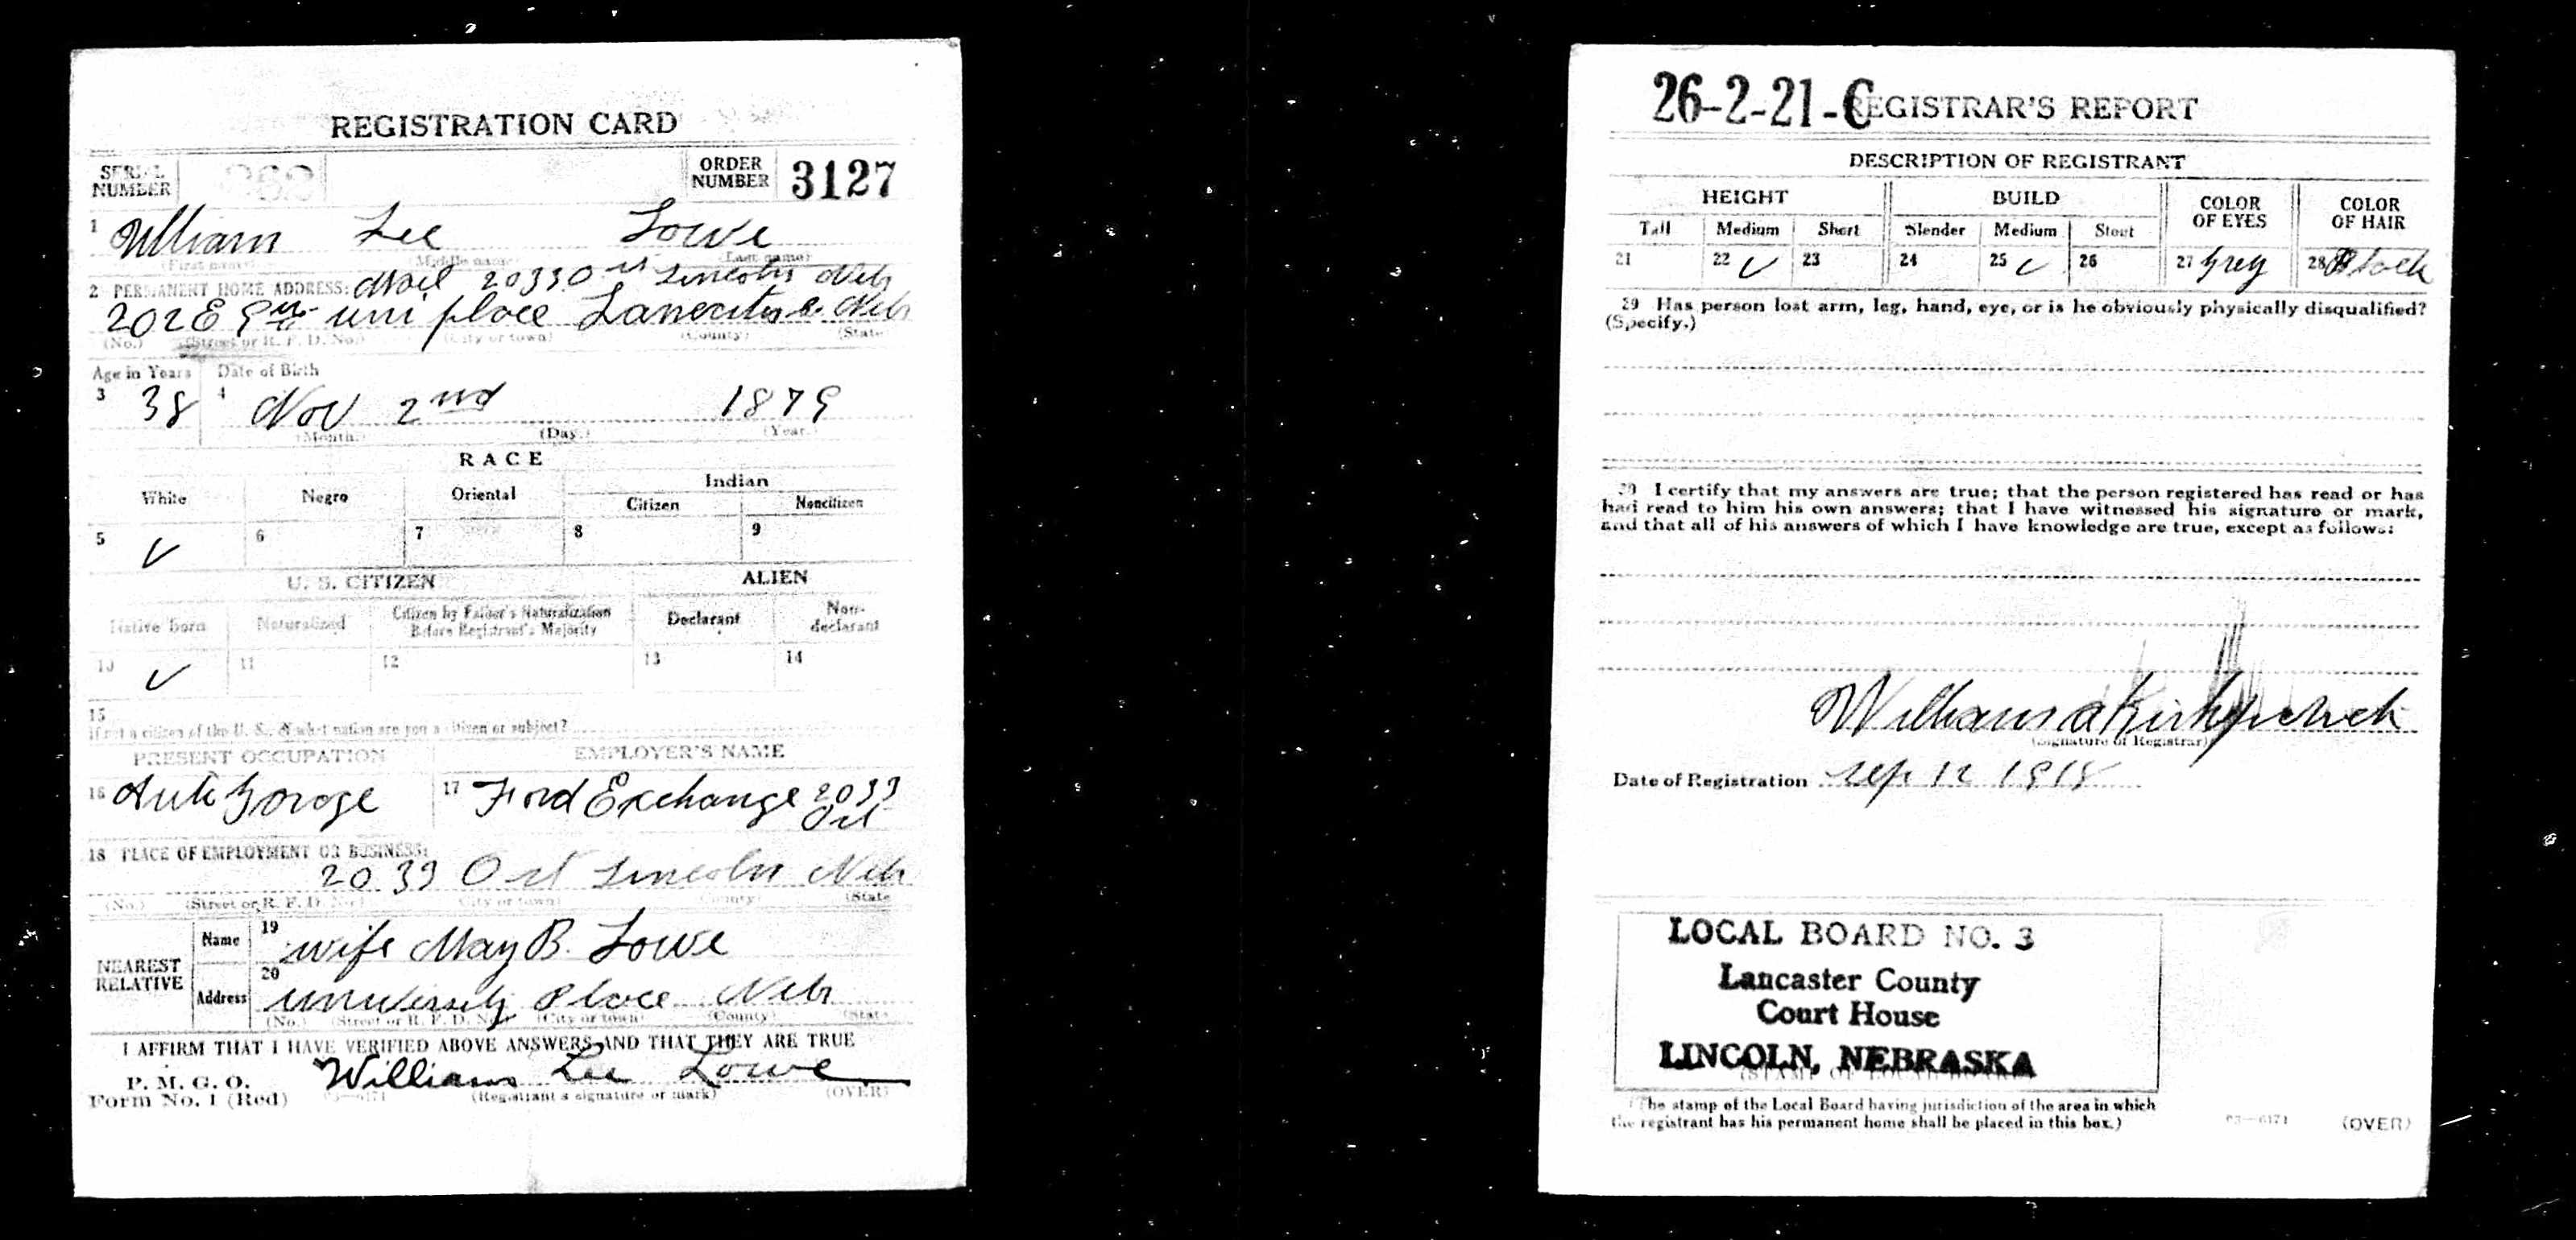 REGISTRATION CARD
SERIAL NUMBER ORDER NUMBER 3127
1 William Lee Lowe
(First name) (Middle name) (Last name)
2 PERMANENT HOME ADDRESS: Mail 2033 O st Lincoln Neb
202 E 9th uni place Lancaster Neb
(No.) (Street or R. F. D. No.) (City or town) (County) (State)
Age in Years Date of Birth
3 38 4 Nov 2nd 1879
(Month.) (Day.) (Year.)
RACE
White Negro Oriental Indian
Citizen Noncitizen
5 ✓ 6 7 8 9
U. S. CITIZEN ALIEN
Native born Naturalized Citizen by Father's Naturalization Before Registrant's Majority Declarant Non-declarant
10 ✓ 11 12 13 14
15
If not a citizen of the U. S., of what nation are you a citizen or subject?
PRESENT OCCUPATION EMPLOYER'S NAME
16 Auto Garage 17 Ford Exchange 2033
O st
18 PLACE OF EMPLOYMENT OR BUSINESS:
2033 O st Lincoln Neb
(No.) (Street or R. F. D. No.) (City or town) (County) (State)
NEAREST RELATIVE
Name 19 wife May B. Lowe
Address 20 University Place Neb
(No.) (Street or R. F. D. No.) (City or town) (County) (State)
I AFFIRM THAT I HAVE VERIFIED ABOVE ANSWERS AND THAT THEY ARE TRUE
P. M. G. O.
Form No. 1 (Red) 03—6171 William Lee Lowe
(Registrant's signature or mark) (OVER)
26-2-21-C
REGISTRAR'S REPORT
DESCRIPTION OF REGISTRANT
HEIGHT BUILD COLOR OF EYES COLOR OF HAIR
Tall Medium Short Slender Medium Stout
21 22 ✓ 23 24 25 ✓ 26 27 Grey 28 Black
29 Has person lost arm, leg, hand, eye, or is he obviously physically disqualified?
(Specify.)
30 I certify that my answers are true; that the person registered has read or has
had read to him his own answers; that I have witnessed his signature or mark,
and that all of his answers of which I have knowledge are true, except as follows:
William A Kirkpatrick
(Signature of Registrar)
Date of Registration Sep 12 1918
LOCAL BOARD NO. 3
Lancaster County
Court House
LINCOLN, NEBRASKA
(The stamp of the Local Board having jurisdiction of the area in which
the registrant has his permanent home shall be placed in this box.)
03—6171 (OVER)